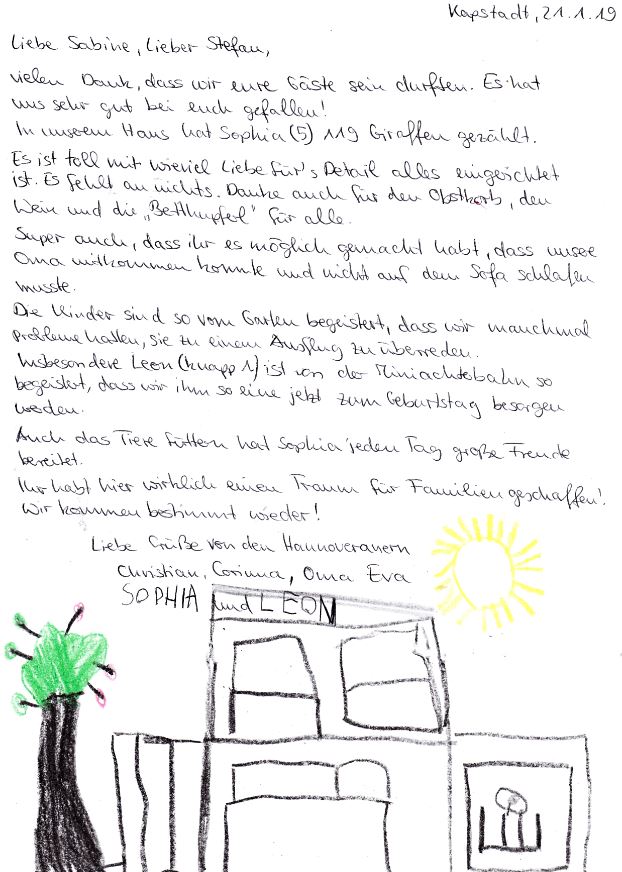 Kapstadt, 21.1.19
Liebe Sabine, Lieber Stefan,
vielen Dank, dass wir eure Gäste sein durften. Es hat
uns sehr gut bei euch gefallen!
In unserem Haus hat Sophia (5) 119 Giraffen gezählt.
Es ist toll mit wieviel Liebe für's Detail alles eingerichtet
ist. Es fehlt an nichts. Danke auch für den Obstkorb, den
Wein und die „Betthupferl" für alle.
Super auch, dass ihr es möglich gemacht habt, dass unsere
Oma mitkommen konnte und nicht auf dem Sofa schlafen
musste.
Die Kinder sind so vom Garten begeistert, dass wir manchmal
Probleme hatten, sie zu einem Ausflug zu überreden.
Insbesondere Leon (knapp 1) ist von der Miniachterbahn so
begeistert, dass wir ihm so eine jetzt zum Geburtstag besorgen
werden.
Auch das Tiere füttern hat Sophia jeden Tag große Freude
bereitet.
Ihr habt hier wirklich einen Traum für Familien geschaffen!
Wir kommen bestimmt wieder!
Liebe Grüße von den Hannoveranern
Christian, Corinna, Oma Eva
SOPHIA und LEON